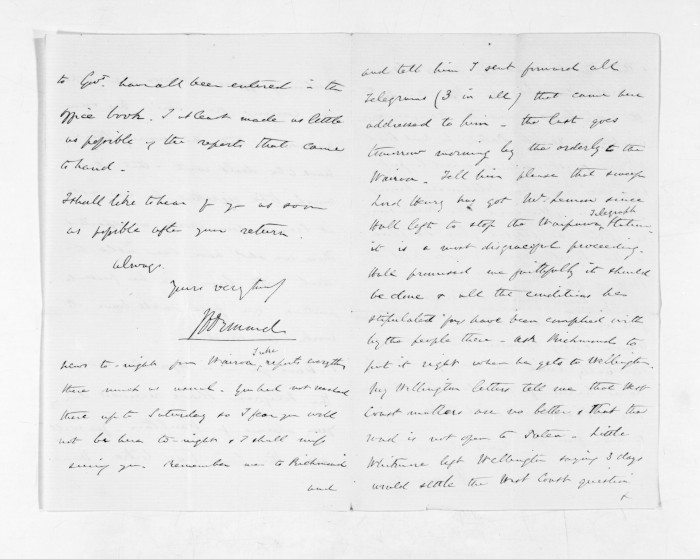 to Govt. have all been entered in the
office book. I at least made as little
as possible of the reports that came
to hand -
I shall like to hear fr you as soon
as possible after your return.
always
Yours very truly
JD Ormond
news to-night from Wairoa, Tuke reports everything
there much as usual - you had not reached
there up to Saturday so I fear you will
not be here to-night & I shall miss
seeing you. Remember me to Richmond
and
and tell him I sent forward all
Telegrams (3 in all) that came here
addressed to him - the last goes
tomorrow morning by the orderly to the
Wairoa. Tell him please that
Lord Henry has got Mr. Lemon since
Hall left to stop the Waipawa Telegraph Station -
it is a most disgraceful proceeding.
Hall promised me faithfully it should
be done & all the conditions he
stipulated for have been complied with
by the people there - ask Richmond to
put it right when he gets to Wellington.
My Wellington letters tell me that West
Coast matters are no better & that the
road is not open to Patea - Little
Whitmore left Wellington saying 3 days
would settle the West Coast question
&